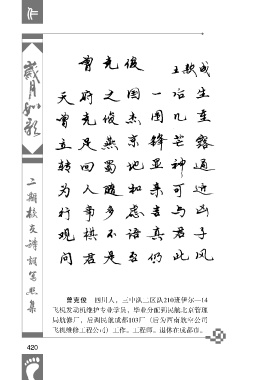 岁月如歌
二期校友诗词写照集
曾克俊
天府之国一后生
曾克俊杰围几重
立足燕京锋芒露
转回蜀地显神通
为人随和亲可近
行事多虑吉与凶
观棋不语真君子
问君是否仍此风
曾克俊 四川人，三中队二区队210班伊尔—14
飞机发动机维护专业学员，毕业分配到民航北京管理
局航修厂，后调民航成都103厂（后为西南航空公司
飞机维修工程公司）工作。工程师。退休在成都市。
420